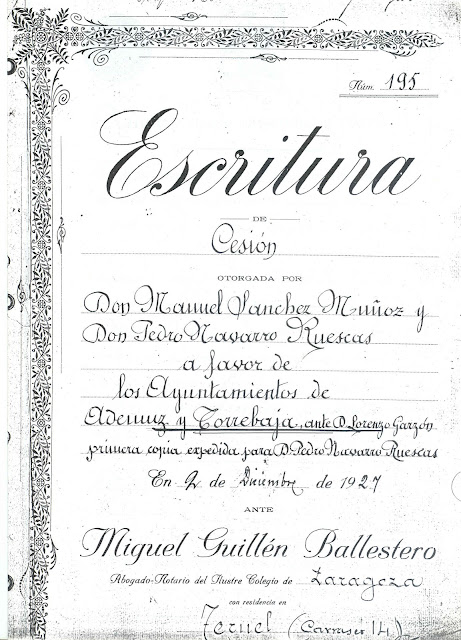 Núm. 195
Escritura
DE
Cesión
OTORGADA POR
Don Manuel Sanchez Muñoz y
Don Pedro Navarro Ruescas
a favor de
los Ayuntamientos de
Ademuz y Torrebaja, ante D. Lorenzo Garzón
primera copia expedida para D. Pedro Navarro Ruescas
En 2 de Diciembre de 1927
ANTE
Miguel Guillén Ballestero
Abogado-Notario del Ilustre Colegio de Zaragoza
con residencia en
Teruel